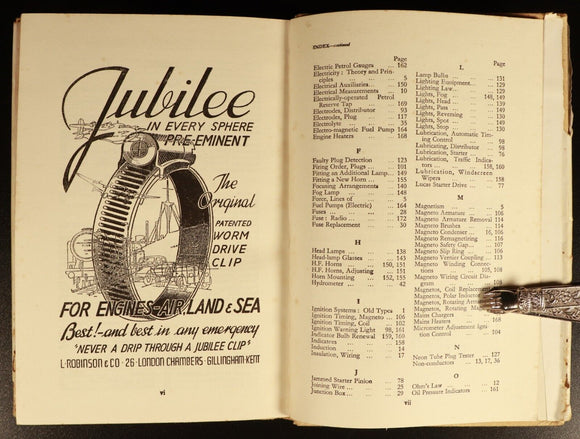 Jubilee
IN EVERY SPHERE
PRE-EMINENT
The
Original
PATENTED
WORM
DRIVE
CLIP
FOR ENGINES-AIR, LAND & SEA
Best!-and best in any emergency
"NEVER A DRIP THROUGH A JUBILEE CLIP"
L·ROBINSON & CO · 26 · LONDON CHAMBERS · GILLINGHAM·KENT
vi
INDEX—continued
Page
Electric Petrol Gauges ... 162
Electricity : Theory and Prin-
ciples ... 5
Electrical Auxiliaries ... 150
Electrical Measurements ... 10
Electrically-operated Petrol
Reserve Tap ... 169
Electrodes, Distributor ... 93
Electrodes, Plug ... 117
Electrolyte ... 35
Electro-magnetic Fuel Pump 164
Engine Heaters ... 168
F
Faulty Plug Detection ... 123
Firing Order, Plugs ... 101
Fitting an Additional Lamp ... 149
Fitting a New Horn ... 155
Focusing Arrangements ... 140
Fog Lamp ... 148
Force, Lines of ... 5
Fuel Pumps (Electric) ... 164
Fuses ... 28
Fuse : Radio ... 172
Fuse Replacement ... 30
H
Head Lamps ... 138
Head-lamp Glasses ... 143
H.F. Horns ... 150, 151
H.F. Horns, Adjusting ... 151
Horn Mounting ... 152, 155
Hydrometer ... 42
I
Ignition Systems : Old Types ... 1
Ignition Timing, Magneto ... 106
Ignition Timing, Coil ... 102
Ignition Warning Light 98, 161
Indicator Bulb Renewal 159, 160
Indicators ... 158
Induction ... 14
Insulation, Wiring ... 17
J
Jammed Starter Pinion ... 78
Joining Wire ... 25
Junction Box ... 29
L
Page
Lamp Bulbs ... 131
Lighting Equipment ... 129
Lighting Law ... 129
Lights, Fog ... 148, 149
Lights, Head ... 139
Lights, Pass ... 149
Lights, Reversing ... 149
Lights, Spot ... 149
Lights, Stop ... 130
Lubrication, Automatic Tim-
ing Control ... 98
Lubricating, Distributor ... 98
Lubrication, Starter ... 76
Lubrication, Traffic Indica-
tors ... 158, 160
Lubrication, Windscreen
Wipers ... 158
Lucas Starter Drive ... 77
M
Magnetism ... 5
Magneto Armature ... 106
Magneto Armature Removal 114
Magneto Brushes ... 114
Magneto Condenser ... 16, 106
Magneto Remagnetizing ... 116
Magneto Safety Gap ... 107
Magneto Slip Ring ... 106
Magneto Vernier Coupling ... 113
Magneto Winding Connec-
tions ... 105, 108
Magneto Wiring Circuit Dia-
gram
Magnetos, Coil Replacement
Magnetos, Polar Inductor
Magnetos, Rotating
Magnetos, Rotating
Mains Chargers
Mains Heaters ... 168
Micrometer Adjustment Igni-
tion Control ... 104
N
Neon Tube Plug Tester ... 127
Non-conductors ... 13, 17, 36
O
Ohm's Law ... 12
Oil Pressure Indicators ... 161
vii